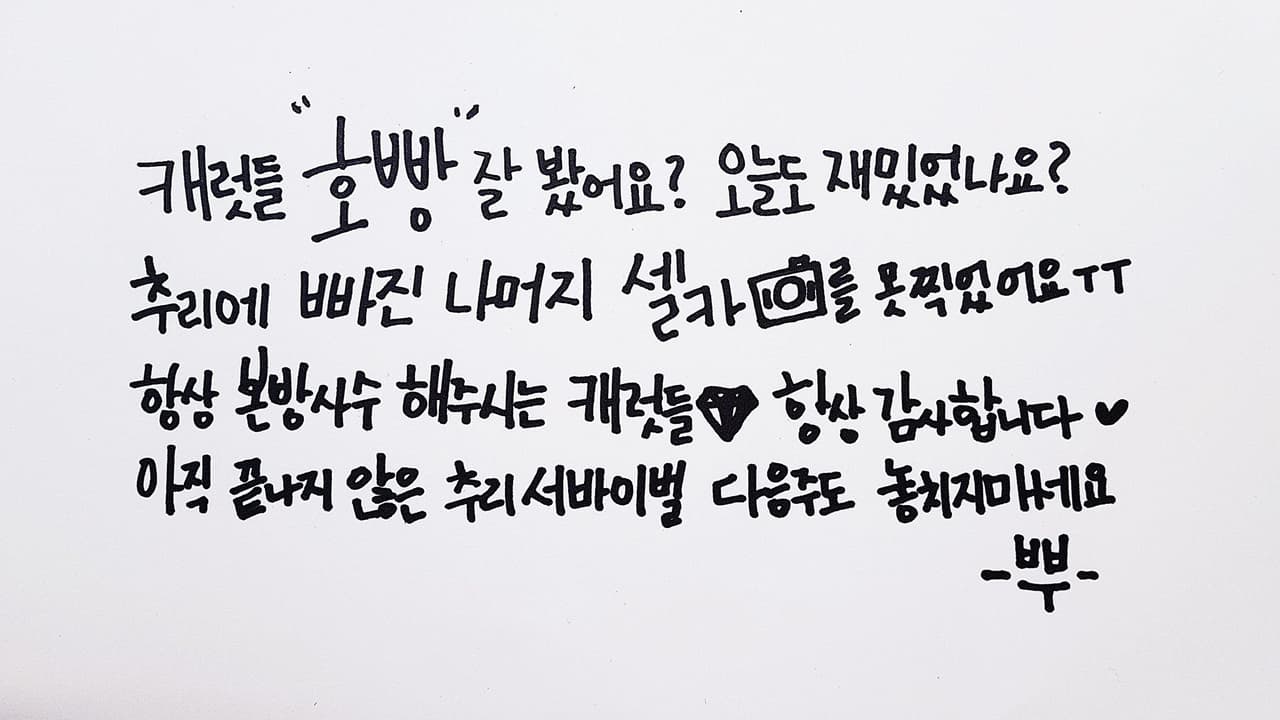 캐럿들 "호빵" 잘 봤어요? 오늘도 재밌었나요?
추리에 빠진 나머지 셀카를 못찍었어요ㅜㅜ
항상 본방사수 해주시는 캐럿들 항상 감사합니다♥
아직 끝나지 않은 추리서바이벌 다음주도 놓치지마세요
-뿌-